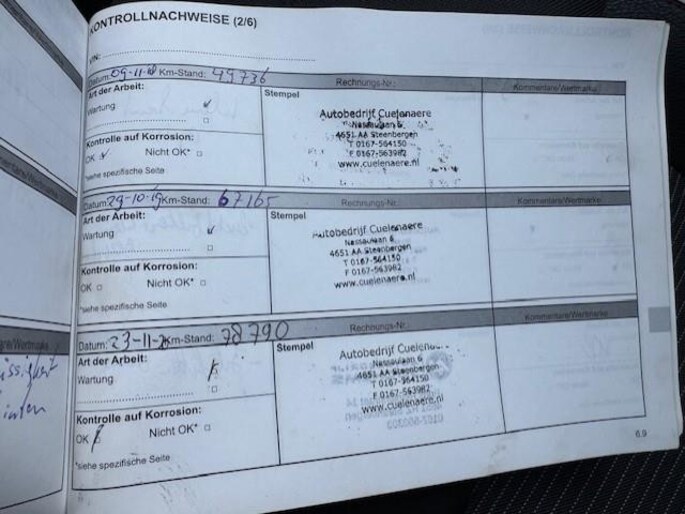 KONTROLLNACHWEISE (2/6)
VIN:
Datum: 09-11-18 Km-Stand: 49736 Rechnungs-Nr.: Kommentare/Wertmarke
Art der Arbeit: Stempel
Wartung
Autobedrijf Cuelenaere
Nassaulaan 6
4651 AA Steenbergen
T 0167-564150
F 0167-563982
www.cuelenaere.nl
Kontrolle auf Korrosion:
OK Nicht OK*
*siehe spezifische Seite
Datum: 29-10-19 Km-Stand: 67165 Rechnungs-Nr.: Kommentare/Wertmarke
Art der Arbeit: Stempel
Wartung
Autobedrijf Cuelenaere
Nassaulaan 6
4651 AA Steenbergen
T 0167-564150
F 0167-563982
www.cuelenaere.nl
Kontrolle auf Korrosion:
OK Nicht OK*
*siehe spezifische Seite
Datum: 23-11-2 Km-Stand: 78790 Rechnungs-Nr.: Kommentare/Wertmarke
Art der Arbeit: Stempel
Wartung
Autobedrijf Cuelenaere
Nassaulaan 6
4651 AA Steenbergen
T 0167-564150
F 0167-563982
www.cuelenaere.nl
Kontrolle auf Korrosion:
OK Nicht OK*
*siehe spezifische Seite
6.9